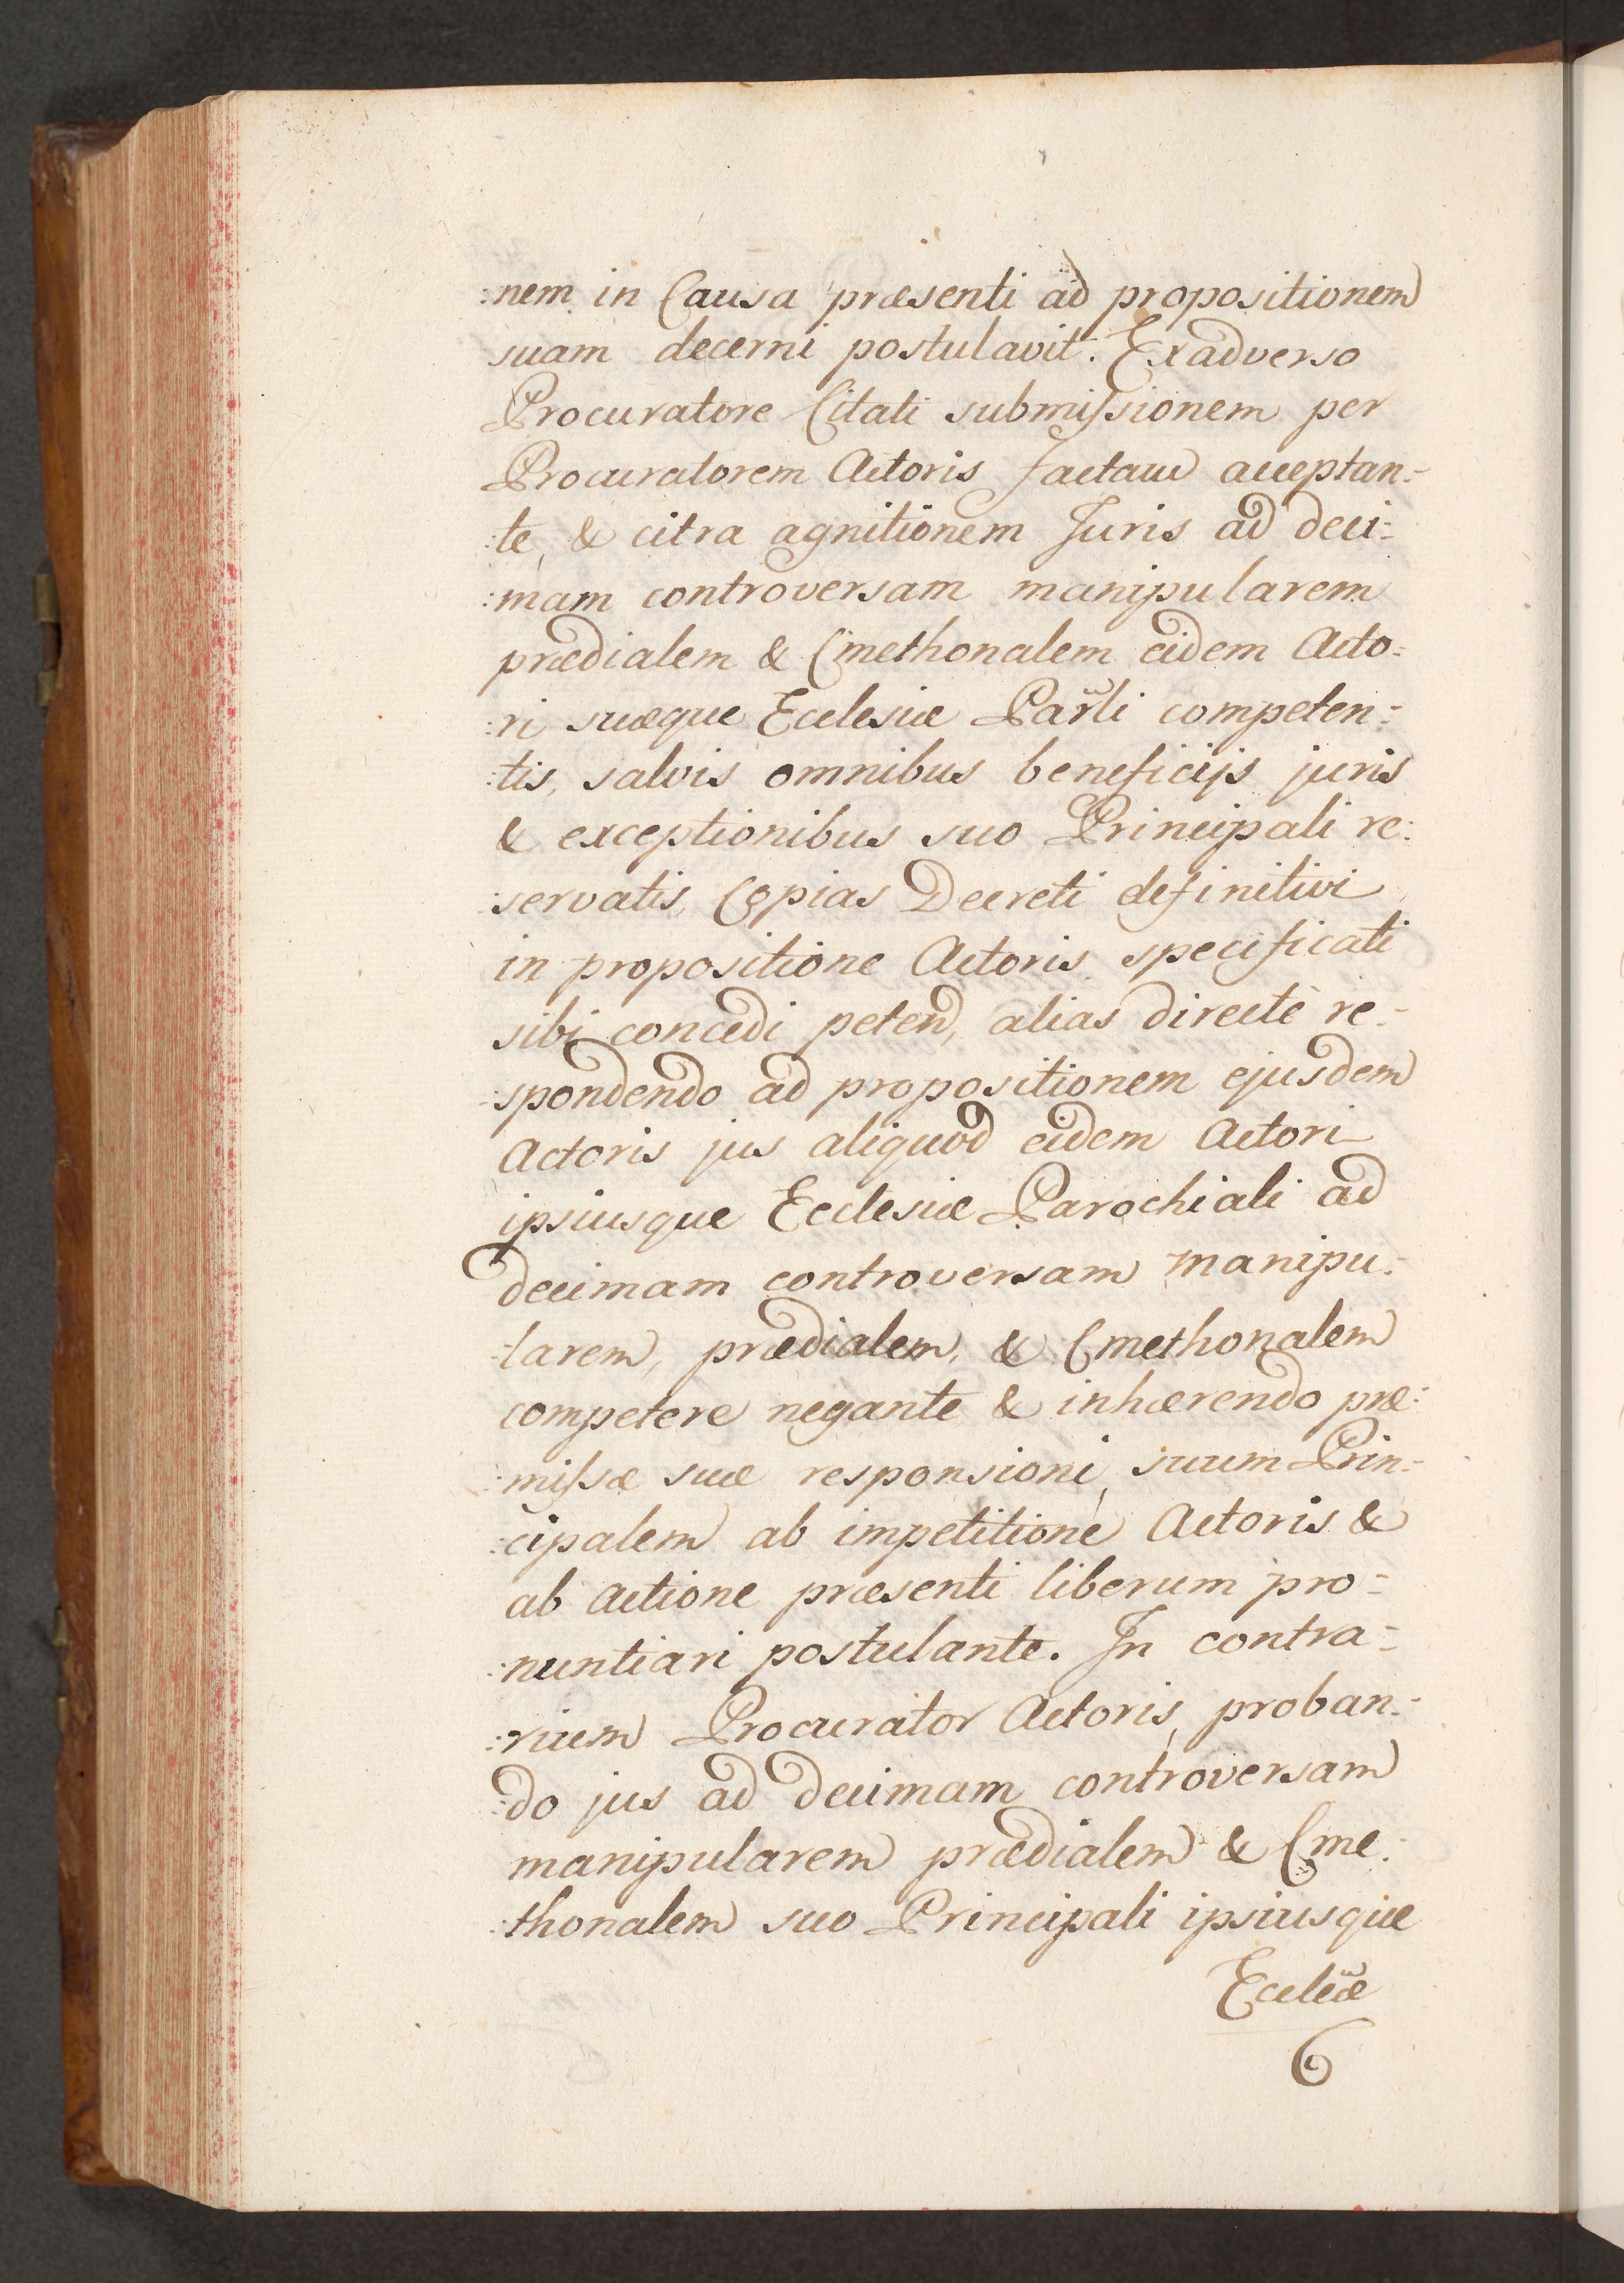 :nem in Causa præsenti ad propositionem
suam decerni postulavit. Exadverso
Procuratore Citati submissionem per
Procuratorem Actoris factam acceptan-
:te, & citra agnitionem Juris ad deci:
:mam controversam manipularem
prædialem & Cmethonalem eidem Acto:
:ri suæque Ecclesiæ Parli competen:
:tis, salvis omnibus beneficijs juris
& exceptionibus suo Principali re:
:servatis, Copias Decreti definitivi
in propositione Actoris specificati
sibi concedi petend, alias directè re-
-spondendo ad propositionem ejusdem
Actoris jus aliquod eidem Actori
ipsiusque Ecclesiæ Parochiali ad
decimam controversam manipu:
-larem, prædialem, & Cmethonalem
competere negante & inhærendo præ:
:missæ suæ responsioni, suum Prin-
:cipalem ab impetitione Actoris &
ab actione præsenti liberum pro=
:nuntiari postulante. In contra=
:rium Procurator Actoris, proban-
:do jus ad decimam controversam
manipularem prædialem & Cme:
:thonalem suo Principali ipsiusque
Eccleæ